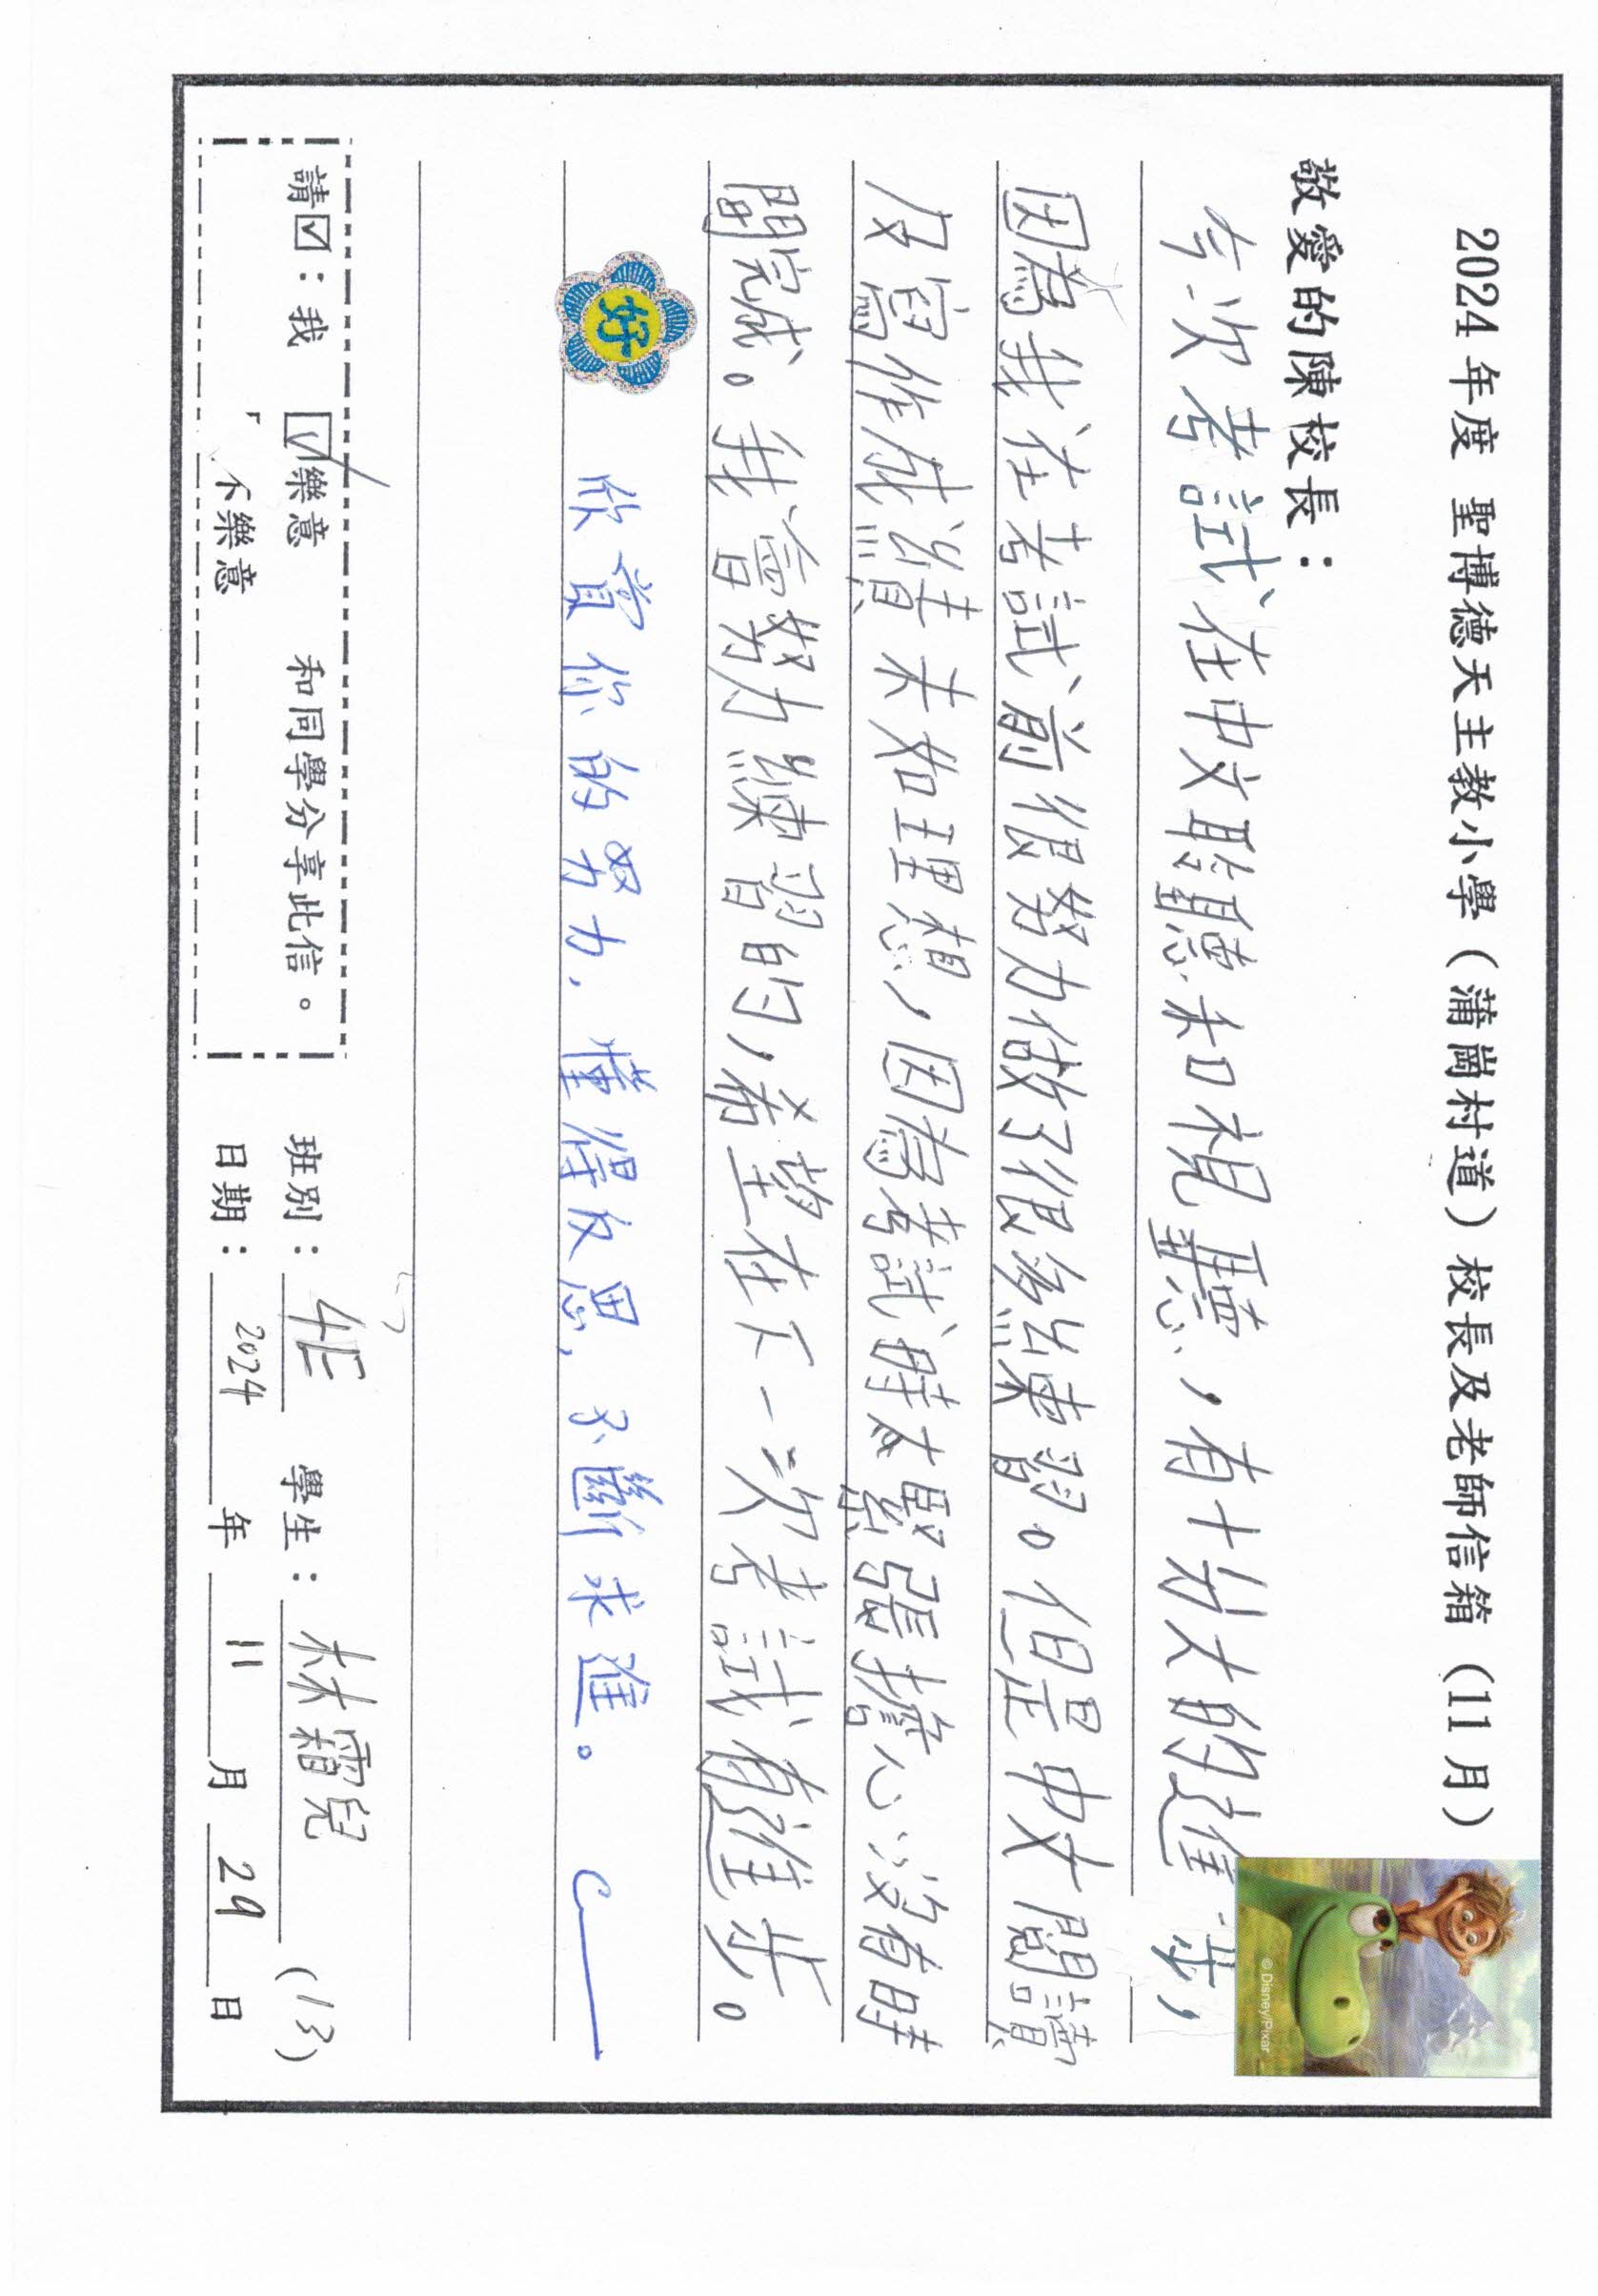 2024 年度 聖博德天主教小學（蒲崗村道）校長及老師信箱（11 月）
敬愛的陳校長：
今次考試在中文聆聽和視聽，有十分大的進步，
因為我在考試前很努力做了很多練習。但是中文閱讀
及寫作成績未如理想，因為考試時太緊張擔心沒有時
間完成。我會努力練習的，希望在下一次考試有進步。
好
欣賞你的努力，懂得反思，不斷求進。
請☑：我 ☑樂意 和同學分享此信。
不樂意
班別：4E 學生：林霜兒 (13)
日期：2024 年 11 月 29 日
© Disney/Pixar